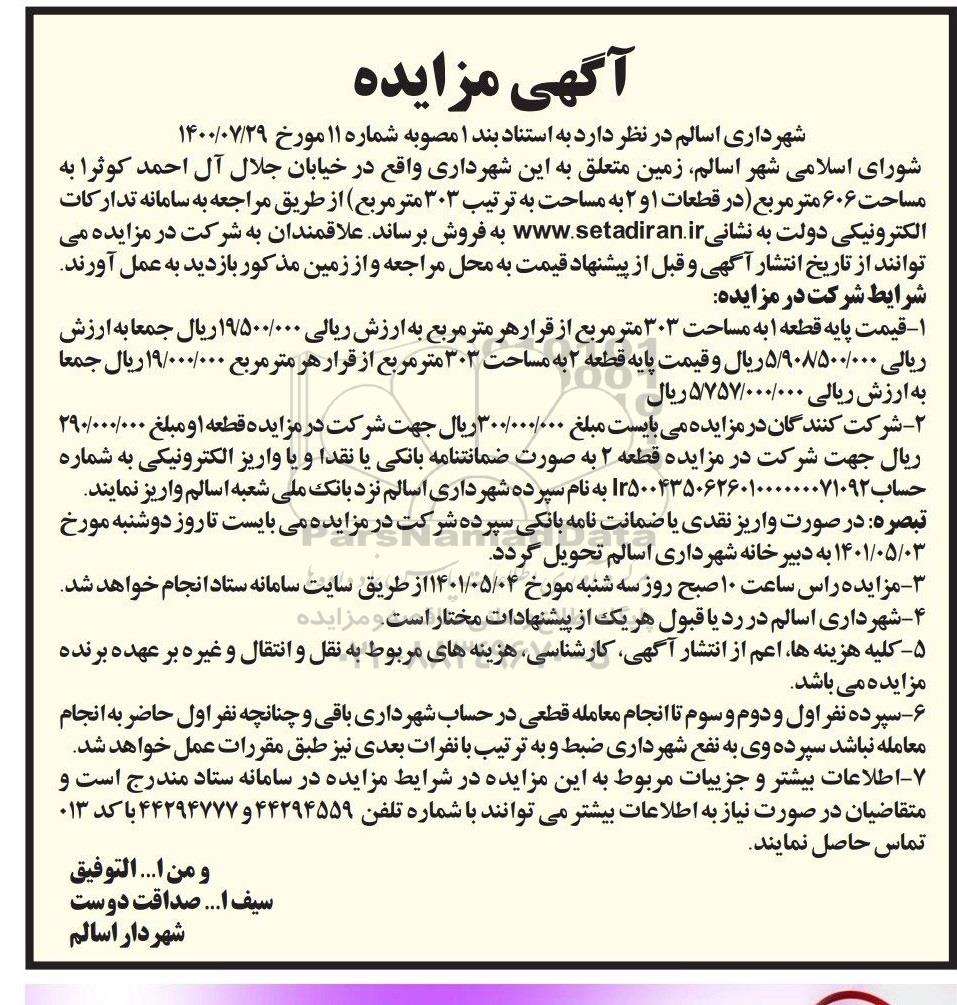 آگهی مزایده
شهرداری اسالم در نظر دارد به استناد بند ۱ مصوبه شماره ۱۱ مورخ ۱۴۰۰/۰۷/۲۹
شورای اسلامی شهر اسالم، زمین متعلق به این شهرداری واقع در خیابان جلال آل احمد کوثر۱ به
مساحت ۶۰۶ مترمربع(در قطعات ۱ و ۲ به مساحت به ترتیب ۳۰۳ مترمربع) از طریق مراجعه به سامانه تدارکات
الکترونیکی دولت به نشانی www.setadiran.ir به فروش برساند. علاقمندان به شرکت در مزایده می
توانند از تاریخ انتشار آگهی و قبل از پیشنهاد قیمت به محل مراجعه و از زمین مذکور بازدید به عمل آورند.
شرایط شرکت در مزایده:
۱-قیمت پایه قطعه ۱ به مساحت ۳۰۳ مترمربع از قرار هر مترمربع به ارزش ریالی ۱۹/۵۰۰/۰۰۰ریال جمعا به ارزش
ریالی ۵/۹۰۸/۵۰۰/۰۰۰ریال و قیمت پایه قطعه ۲ به مساحت ۳۰۳ مترمربع از قرار هر مترمربع ۱۹/۰۰۰/۰۰۰ریال جمعا
به ارزش ریالی ۵/۷۵۷/۰۰۰/۰۰۰ ریال
۲-شرکت کنندگان در مزایده می بایست مبلغ ۳۰۰/۰۰۰/۰۰۰ریال جهت شرکت در مزایده قطعه ۱ و مبلغ ۲۹۰/۰۰۰/۰۰۰
ریال جهت شرکت در مزایده قطعه ۲ به صورت ضمانتنامه بانکی یا نقدا و یا واریز الکترونیکی به شماره
حساب Ir۵۰۰۴۳۵۰۶۲۶۰۱۰۰۰۰۰۰۰۷۱۰۹۲ به نام سپرده شهرداری اسالم نزد بانک ملی شعبه اسالم واریز نمایند.
تبصره: در صورت واریز نقدی یا ضمانت نامه بانکی سپرده شرکت در مزایده می بایست تا روز دوشنبه مورخ
۱۴۰۱/۰۵/۰۳ به دبیرخانه شهرداری اسالم تحویل گردد.
۳-مزایده راس ساعت ۱۰ صبح روز سه شنبه مورخ ۱۴۰۱/۰۵/۰۴از طریق سایت سامانه ستاد انجام خواهد شد.
۴-شهرداری اسالم در رد یا قبول هر یک از پیشنهادات مختار است.
۵-کلیه هزینه ها، اعم از انتشار آگهی، کارشناسی، هزینه های مربوط به نقل و انتقال و غیره بر عهده برنده
مزایده می باشد.
۶-سپرده نفر اول و دوم و سوم تا انجام معامله قطعی در حساب شهرداری باقی و چنانچه نفر اول حاضر به انجام
معامله نباشد سپرده وی به نفع شهرداری ضبط و به ترتیب با نفرات بعدی نیز طبق مقررات عمل خواهد شد.
۷-اطلاعات بیشتر و جزییات مربوط به این مزایده در شرایط مزایده در سامانه ستاد مندرج است و
متقاضیان در صورت نیاز به اطلاعات بیشتر می توانند با شماره تلفن ۴۴۲۹۴۵۵۹ و ۴۴۲۹۴۷۷۷ با کد ۰۱۳
تماس حاصل نمایند.
و من ا... التوفیق
سیف ا... صداقت دوست
شهردار اسالم
ParsNamadData